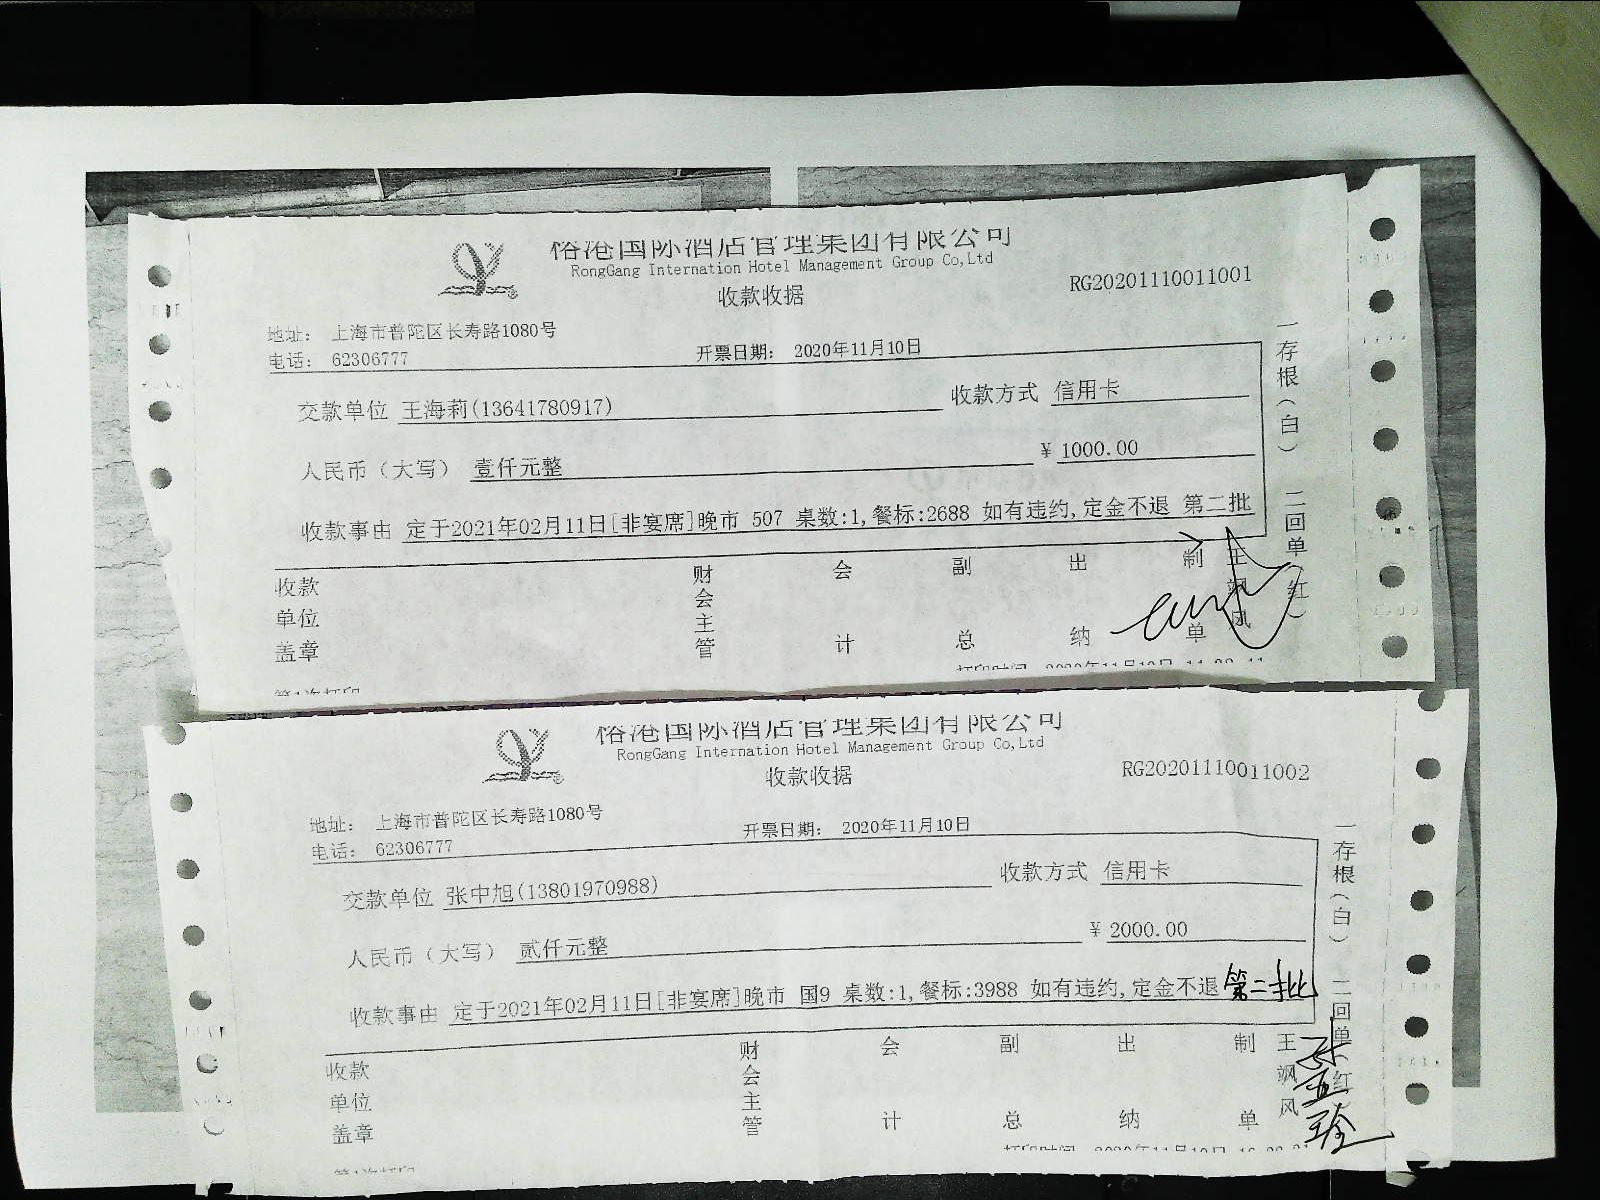 俗港国际酒店管理集团有限公司
RongGang Internation Hotel Management Group Co,Ltd
收款收据
RG20201110011001
地址： 上海市普陀区长寿路1080号
电话： 62306777
开票日期： 2020年11月10日
交款单位 王海莉(13641780917)
收款方式 信用卡
人民币（大写） 壹仟元整
¥ 1000.00
收款事由 定于2021年02月11日[非宴席]晚市 507 桌数:1,餐标:2688 如有违约,定金不退 第二批
收款单位盖章
财会主管
会计
副总
出纳
制单
王飒风
一存根（白） 二回单（红）
俗港国际酒店管理集团有限公司
RongGang Internation Hotel Management Group Co,Ltd
收款收据
RG20201110011002
地址： 上海市普陀区长寿路1080号
电话： 62306777
开票日期： 2020年11月10日
交款单位 张中旭(13801970988)
收款方式 信用卡
人民币（大写） 贰仟元整
¥ 2000.00
收款事由 定于2021年02月11日[非宴席]晚市 国9 桌数:1,餐标:3988 如有违约,定金不退 第二批
收款单位盖章
财会主管
会计
副总
出纳
制单
王飒风
一存根（白） 二回单（红）